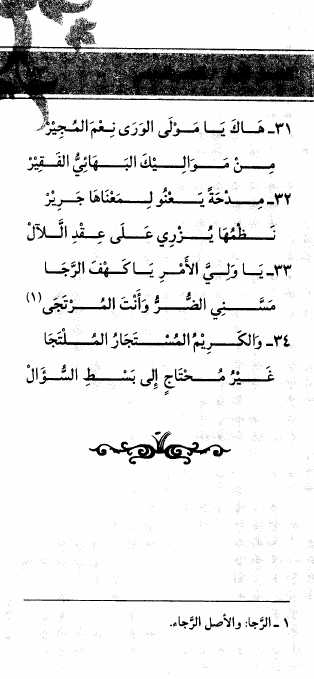 ٣١ـ هَـاكَ يَـا مَـوْلَى الوَرَى نِعْمَ المُجِيْرْ
مِـنْ مَـوَالِـيْـكَ الـبَـهَـائِيُّ الفَقِيْرْ
٣٢ـ مِـدْحَةً يَـعْـنُو لِـمَعْنَاهَا جَرِيْرْ
نَـظْمُهَا يُـزْرِي عَـلَى عِقْدِ الَّلآلْ
٣٣ـ يَـا وَلِـيَّ الأَمْـرِ يَـا كَـهْفَ الرَّجَا
مَـسَّـنِي الضُّرُّ وَأَنْتَ المُـرْتَجَى (١)
٣٤ـ وَالكَـرِيْمُ المُسْتَجَارُ المُـلْتَجَا
غَـيْرُ مُـحْتَاجٍ إِلَى بَـسْطِ السُّؤَالْ
١ ـ الرَّجا: والأصل الرَّجاء.